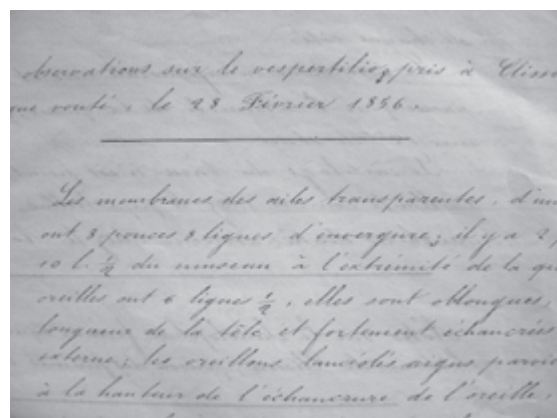 observations sur le vespertilio, pris à Cliss
voûté, le 28 Février 1856.
Les membranes des ailes transparentes, d'un
ont 8 pouces 8 lignes d'envergure; il y a 2
10 l. ½ du museau à l'extrémité de la qu
oreilles ont 6 lignes ½, elles sont oblongues,
longueur de la tête et fortement échancrées
externe; les oreillons lancéolés aigus parois
à la hauteur de l'échancrure de l'oreille,